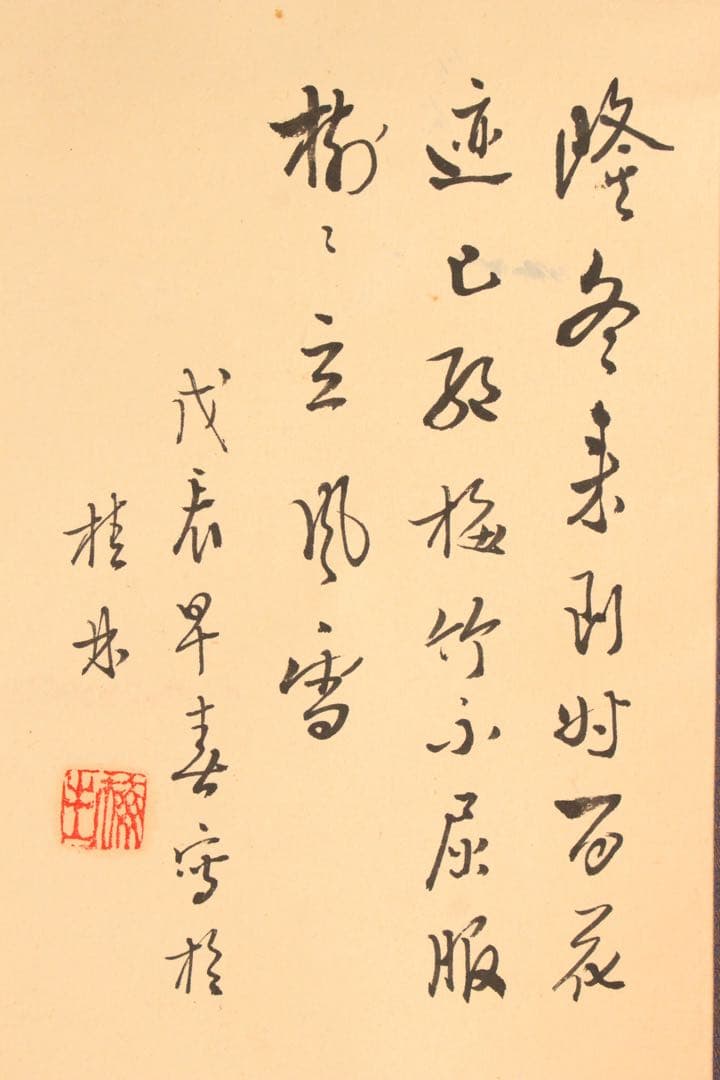 隆冬来到时百花
迹已绝梅竹不屈服
树〻立风雪
戊辰早春写於
桂林